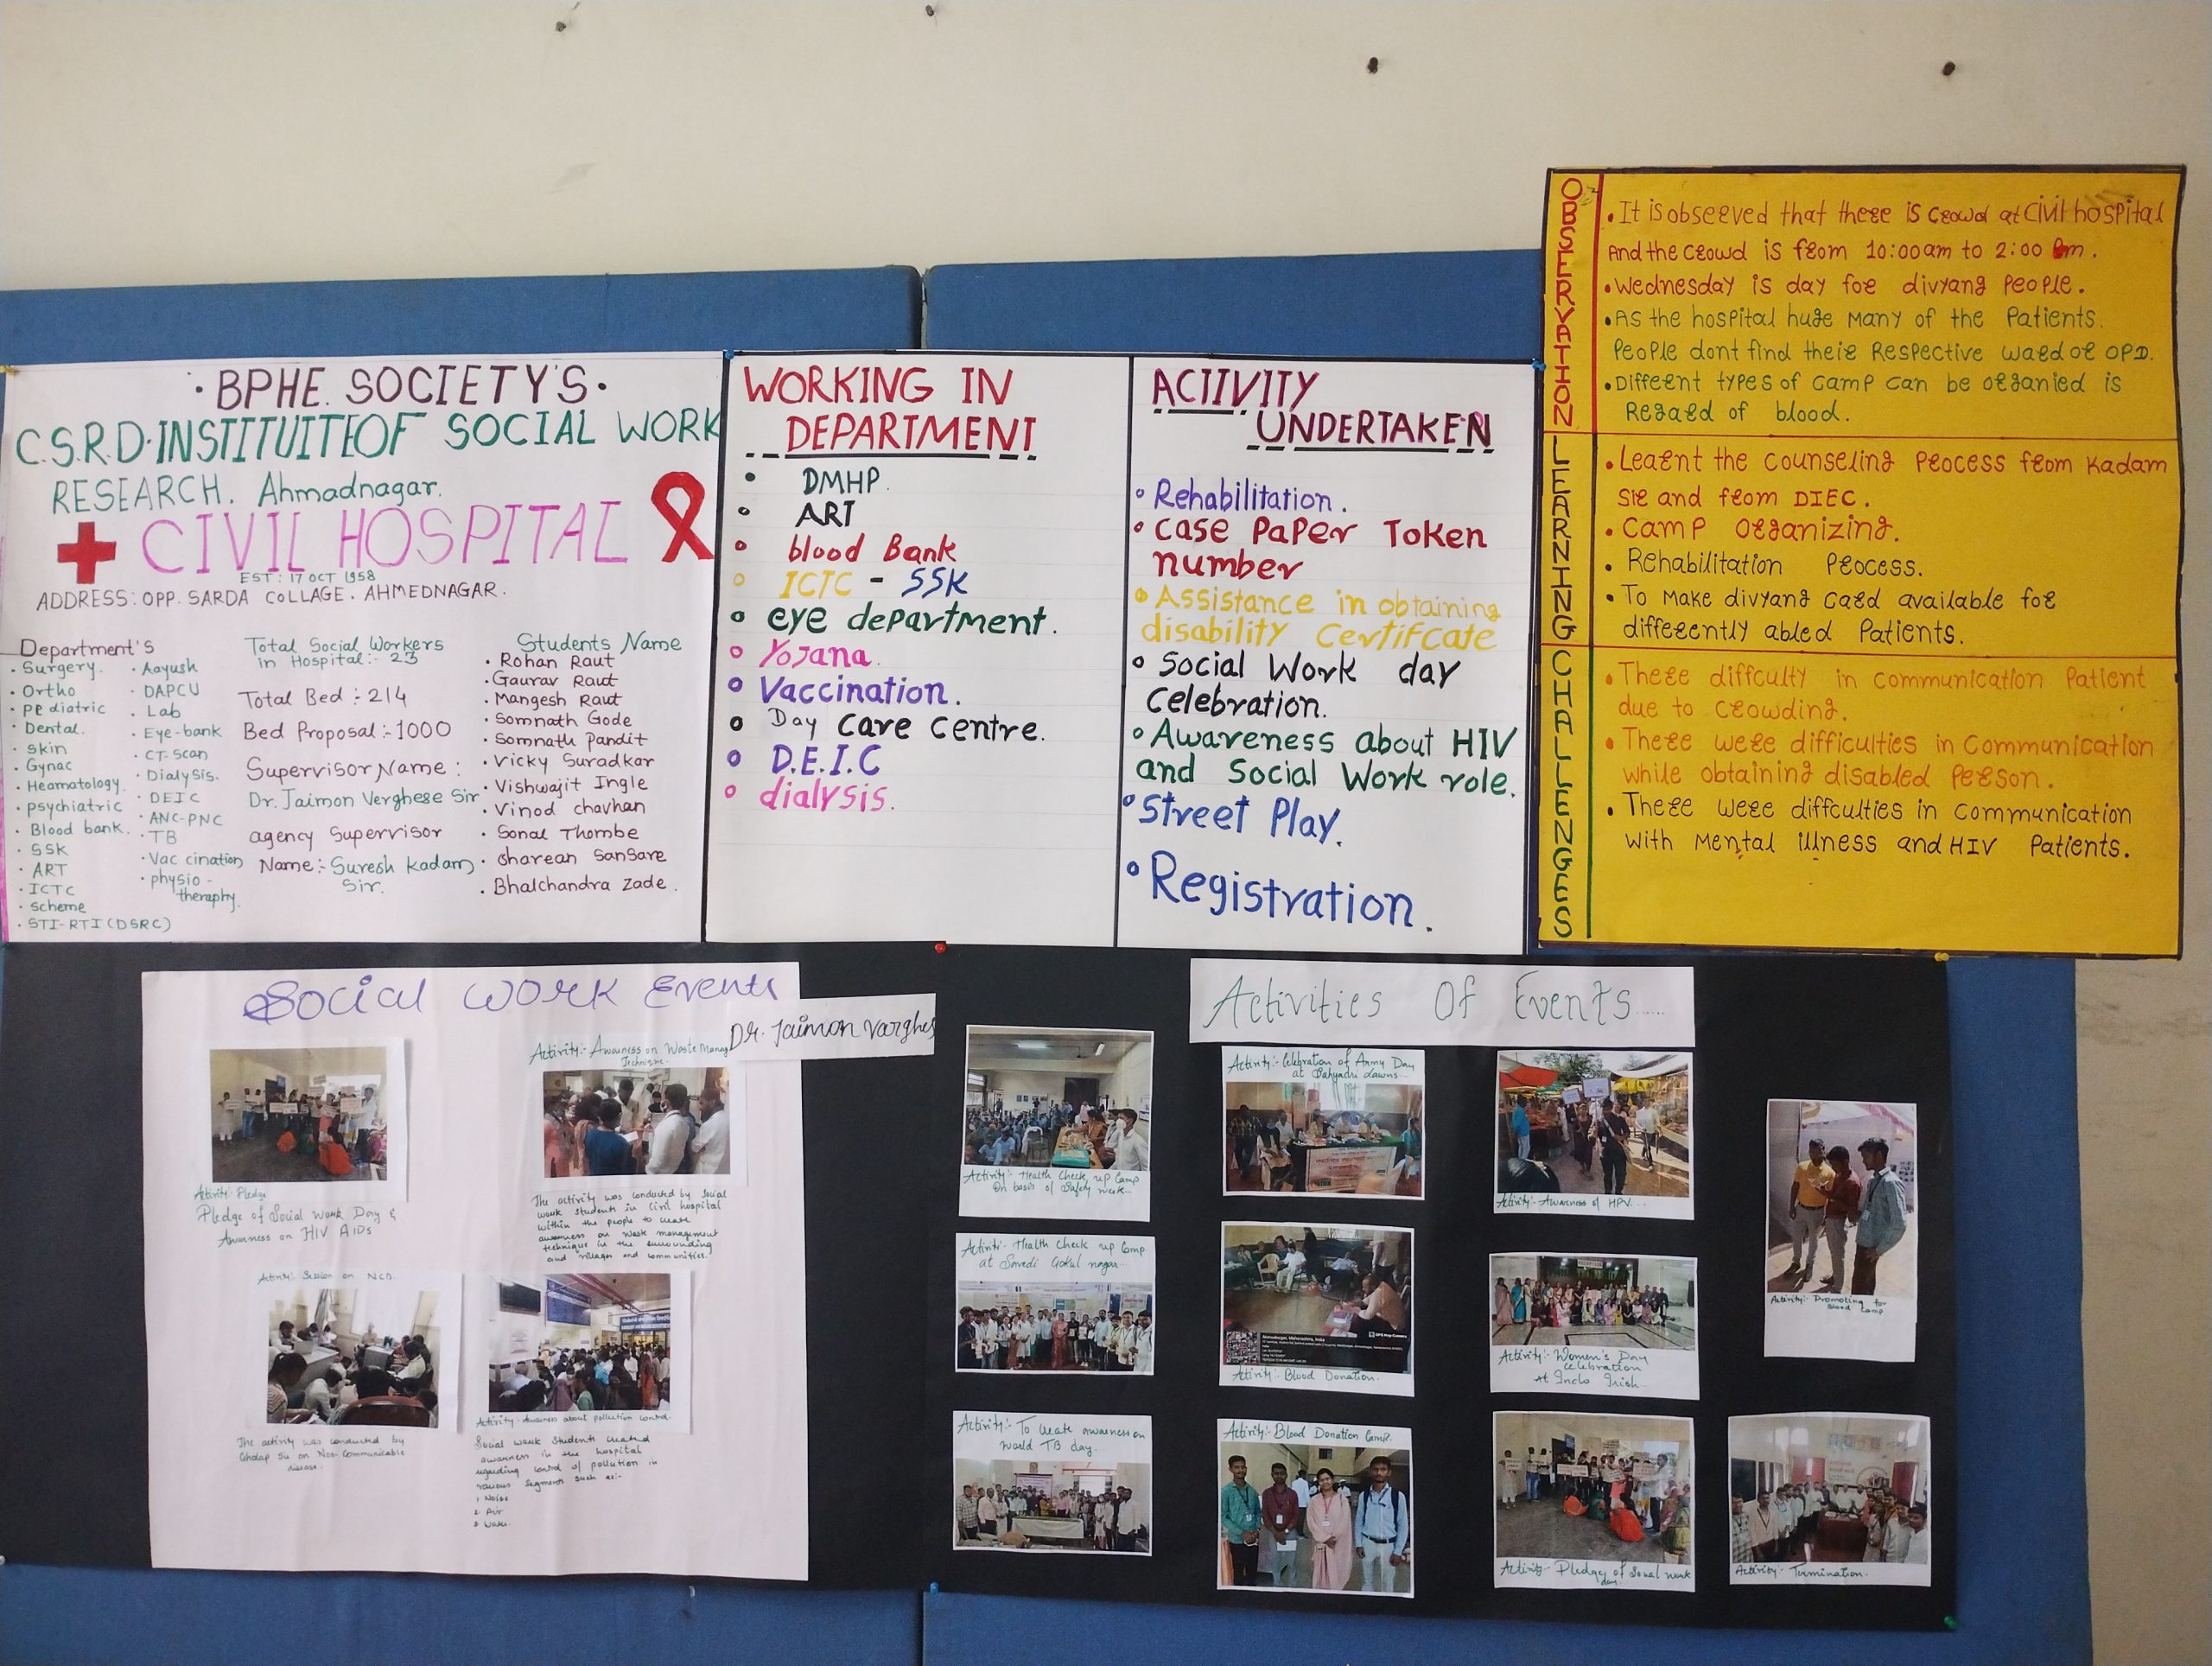 · BPHE. SOCIETY'S ·
C.S.R.D. INSTITUITEOF SOCIAL WORK
RESEARCH. Ahmadnagar.
CIVIL HOSPITAL
EST: 17 OCT 1958
ADDRESS: OPP. SARDA COLLAGE. AHMEDNAGAR.
Department's
• Surgery.
• Ortho
• pediatric
• Dental.
• Skin
• Gynac
• Heamatology.
• psychiatric
• Blood bank.
• SSK
• ART
• ICTC
• scheme
• STI-RTI (DSRC)
• Aayush
• DAPCU
• Lab
• Eye-bank
• CT-Scan
• Dialysis.
• DEIC
• ANC-PNC
• TB
• Vaccination
• physio-
theraphy.
Total Social Workers
in Hospital:- 23
Total Bed :- 214
Bed Proposal :- 1000
Supervisor Name :
Dr. Jaimon Verghese Sir
agency Supervisor
Name :- Suresh Kadam
Sir.
Students Name
• Rohan Raut
• Gaurav Raut
• Mangesh Raut
• Somnath Gode
• Somnath Pandit
• Vicky Suradkar
• Vishwajit Ingle
• Vinod chavhan
• Sonal Thombe
• Gharean Sansare
• Bhalchandra Zade.
WORKING IN
DEPARTMENT
• DMHP.
• ART
• blood Bank
• ICTC - SSK
• eye department.
• Yojana.
• Vaccination.
• Day care centre.
• D.E.I.C
• dialysis.
ACTIVITY
UNDERTAKEN
• Rehabilitation.
• case Paper Token
number
• Assistance in obtaining
disability Certifcate
• Social Work day
Celebration.
• Awareness about HIV
and Social Work role.
• Street Play.
• Registration.
OBSERVATION
• It is observed that there is crowd at civil hospital
And the crowd is from 10:00am to 2:00 Pm.
• Wednesday is day for divyang People.
• As the hospital huge many of the Patients.
People dont find their Respective ward or OPD.
• Different types of camp can be organied is
Regard of blood.
LEARNING
• Learnt the counseling Process from Kadam
sir and from DIEC.
• Camp organizing.
• Rehabilitation Process.
• To make divyang card available for
differently abled Patients.
CHALLENGES
• There diffculty in communication Patient
due to crowding.
• There were difficulties in communication
while obtaining disabled Person.
• There were diffculties in communication
with mental illness and HIV Patients.
Social Work Events
Dr. Jaimon Varghes
Activity:- Pledge
Pledge of Social Work Day &
Awarness on HIV AIDs
Activity:- Awarness on Waste Manag
Technique.
The activity was conducted by Social
work students in Civil hospital
within the people to create
awarness on waste management
technique in the surrounding
and villages and communities.
Activity:- Session on NCD.
The activity was conducted by
Gholap Sir on Non-Communicable
disease.
Activity:- Awarness about pollution control.
Social work students created
awarness in the hospital
regarding control of pollution in
various segments such as:-
1 Noise
2 Air
3 Water.
Activities Of Events......
Activity:- Health Check up Camp
On basis of Safety week...
Activity:- Celebration of Army Day
at Sahyadri dawns...
Activity:- Awarness of HPV...
Activity:- Promoting for
Blood Camp
Activity:- Health Check up Camp
at Savedi Gokul nagar...
Activity:- Blood Donation.
Activity:- Women's Day
Celebration
at Indo Irish.
Activity:- To create awarness on
World TB day.
Activity:- Blood Donation Camp.
Activity:- Pledge of Social work
day.
Activity:- Termination.